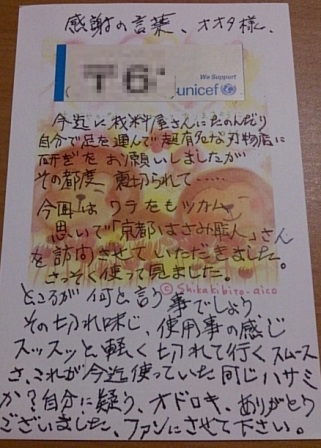 感謝の言葉、オオタ様、
〒6
We Support
unicef
今迄に材料屋さんにたのんだり
自分で足を運んで超有名な刃物店に
研ぎをお願いしましたが
その都度、裏切られて……
今回はワラをもツカム
思いで「京都はさみ職人」さん
を訪問させていただきました。
さっそく使って見ました。
©Shikakibito-aico
ところが何と言う事でしょう
その切れ味、使用事の感じ
スッスッと、軽く切れて行くスムース
さ、これが今迄使っていた同じハサミ
か?自分に疑り、オドロキ、ありがとう
ございました、ファンにさせて下さい。